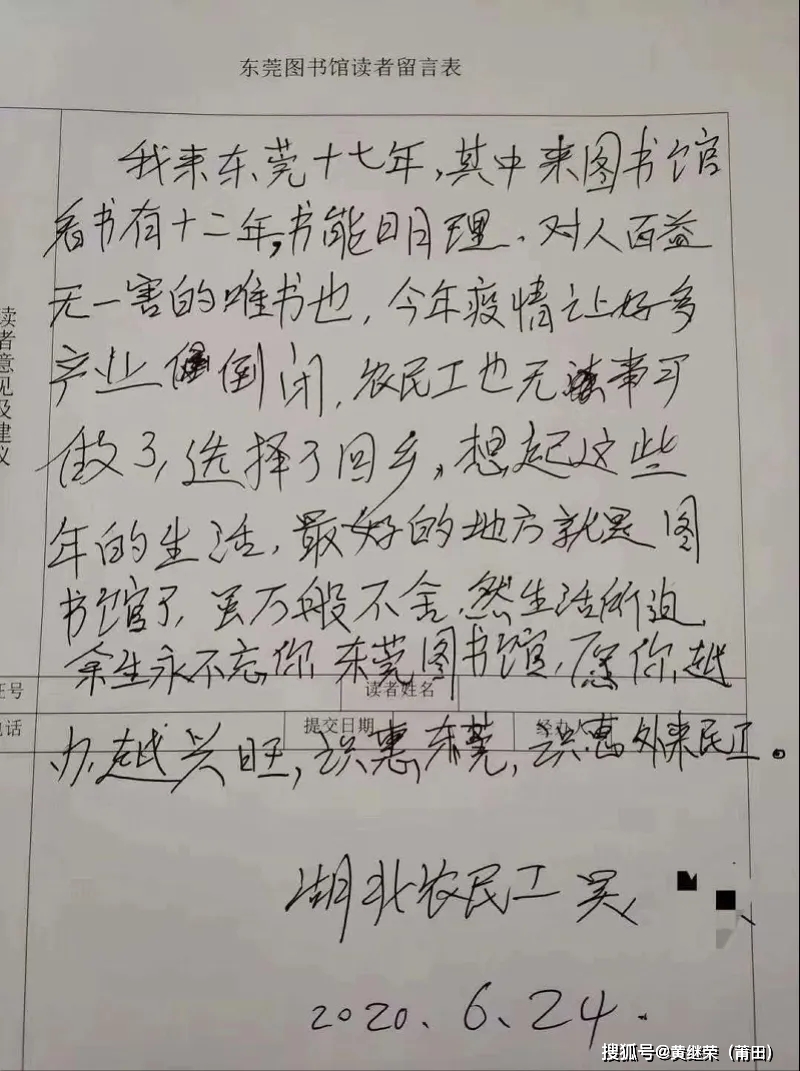 东莞图书馆读者留言表
我来东莞十七年,其中来图书馆
看书有十二年,书能明理、对人百益
无一害的唯书也,今年疫情让好多
产业倒闭,农民工也无事可
做了,选择了回乡,想起这些
年的生活,最好的地方就是图
书馆了,虽万般不舍,然生活所迫,
余生永不忘你,东莞图书馆,愿你越
办越兴旺,识惠东莞,识惠外来民工。
读者意见及建议
证号
读者姓名
电话
提交日期
经办人
湖北农民工 吴
2020、6、24.
搜狐号@黄继荣(莆田)